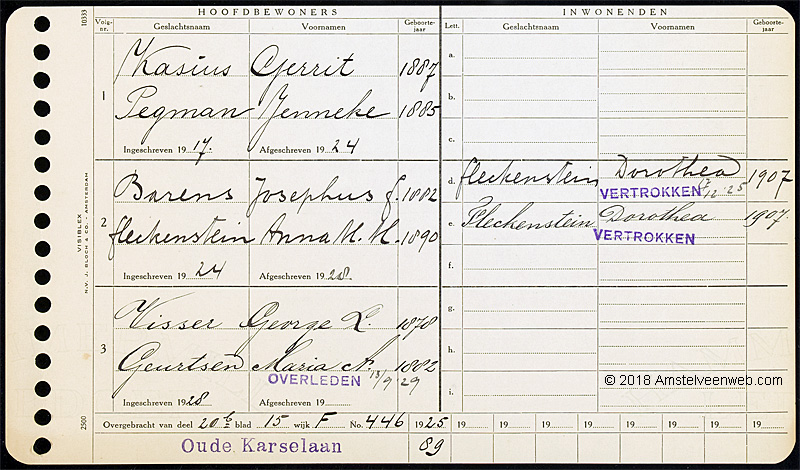 HOOFDBEWONERS INWONENDEN
Volg-nr. Geslachtsnaam Voornamen Geboorte-jaar Lett. Geslachtsnaam Voornamen Geboorte-jaar
1 Kasius Gerrit 1887
Pegman Jenneke 1885
Ingeschreven 1917. Afgeschreven 1924
a.
b.
c.
2 Barens Josephus J. 1882
Fleckenstein Anna M. H. 1890
Ingeschreven 1924 Afgeschreven 1928.
d. Fleckenstein Dorothea 1907
VERTROKKEN 12/12 '25
e. Fleckenstein Dorothea 1907
VERTROKKEN
f.
3 Visser George L. 1878
Geurtsen Maria A. 1882
OVERLEDEN 13/9 29
Ingeschreven 1928. Afgeschreven 19
g.
h.
i.
© 2018 Amstelveenweb.com
Overgebracht van deel 20b blad 15 wijk F No. 446 1925 19 19 19 19 19 19 19 19
Oude Karselaan 89
10333
VISIBLEX
N.V. J. BLOCH & CO. - AMSTERDAM
2500